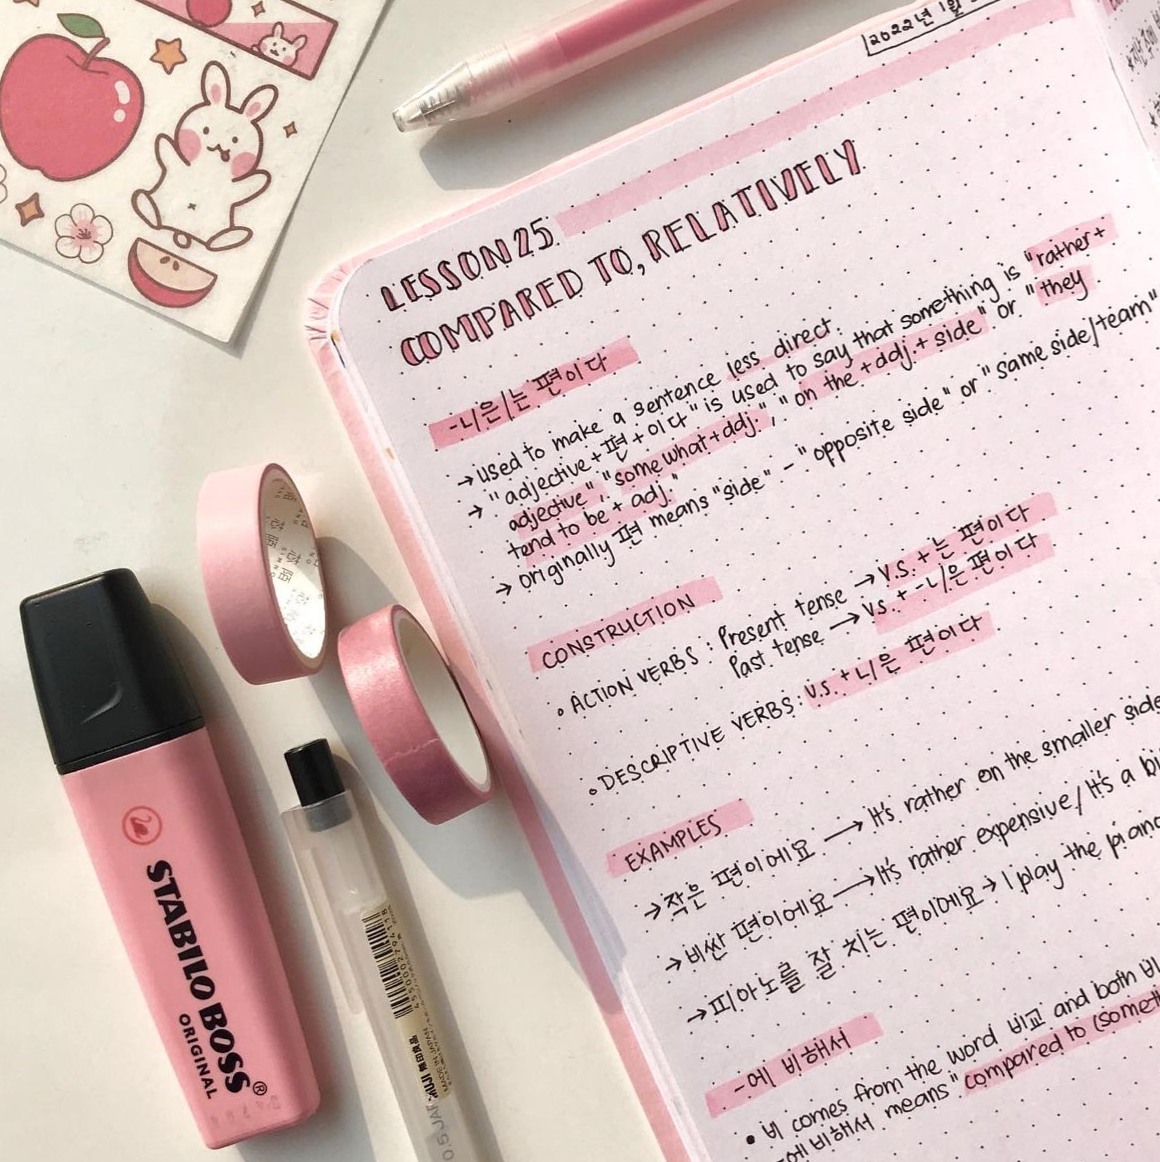 2022년 1월
LESSON 25
COMPARED TO, RELATIVELY
-ㄴ/은/는 편이다
→ used to make a sentence less direct.
→ "adjective + 편 + 이다" is used to say that something is "rather +
adjective", "somewhat + adj.", "on the + adj. + side" or "they
tend to be + adj."
→ Originally 편 means "side" - "opposite side" or "same side/team"
CONSTRUCTION
• ACTION VERBS : Present tense → V.S. + 는 편이다
Past tense → V.S. + -ㄴ/은 편이다
• DESCRIPTIVE VERBS: V.S. + ㄴ/은 편이다
EXAMPLES
→ 작은 편이에요 → It's rather on the smaller side
→ 비싼 편이에요 → It's rather expensive/It's a bi
→ 피아노를 잘 치는 편이에요 → I play the piano
-에 비해서
• 비 comes from the word 비교 and both 비
-에 비해서 means "compared to (someth
STABILO BOSS®
ORIGINAL
4550002794118
MUJI 無印良品
MADE IN JAPAN
0.5